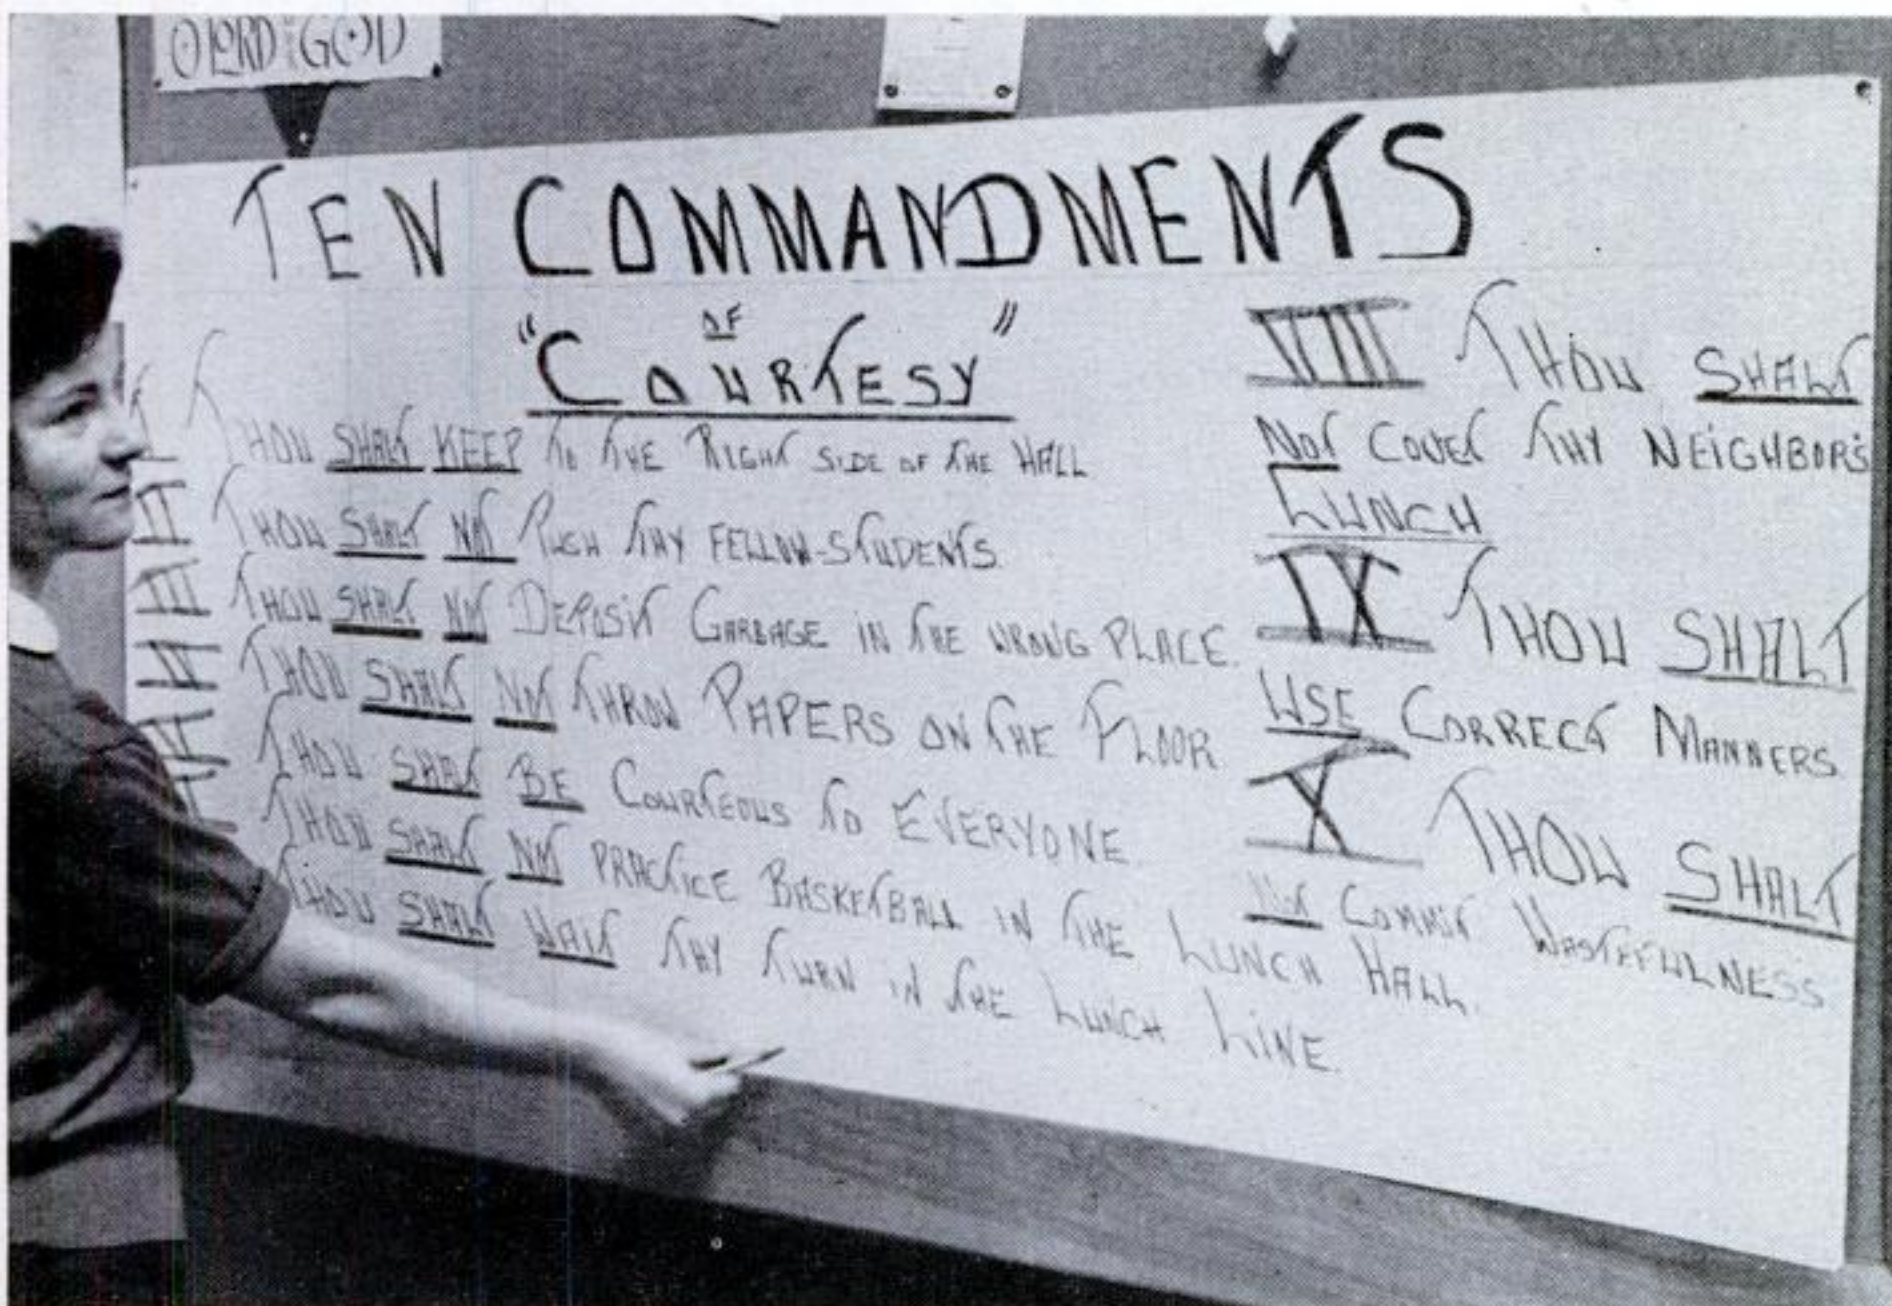 O LORD GOD
TEN COMMANDMENTS
OF
"COURTESY"
I THOU SHALT KEEP TO THE RIGHT SIDE OF THE HALL
II THOU SHALT NOT PUSH THY FELLOW-STUDENTS.
III THOU SHALT NOT DEPOSIT GARBAGE IN THE WRONG PLACE.
IV THOU SHALT NOT THROW PAPERS ON THE FLOOR
V THOU SHALT BE COURTEOUS TO EVERYONE.
VI THOU SHALT NOT PRACTICE BASKETBALL IN THE LUNCH HALL.
VII THOU SHALT WAIT THY TURN IN THE LUNCH LINE.
VIII THOU SHALT
NOT COVET THY NEIGHBOR'S
LUNCH
IX THOU SHALT
USE CORRECT MANNERS
X THOU SHALT
NOT COMMIT WASTEFULNESS